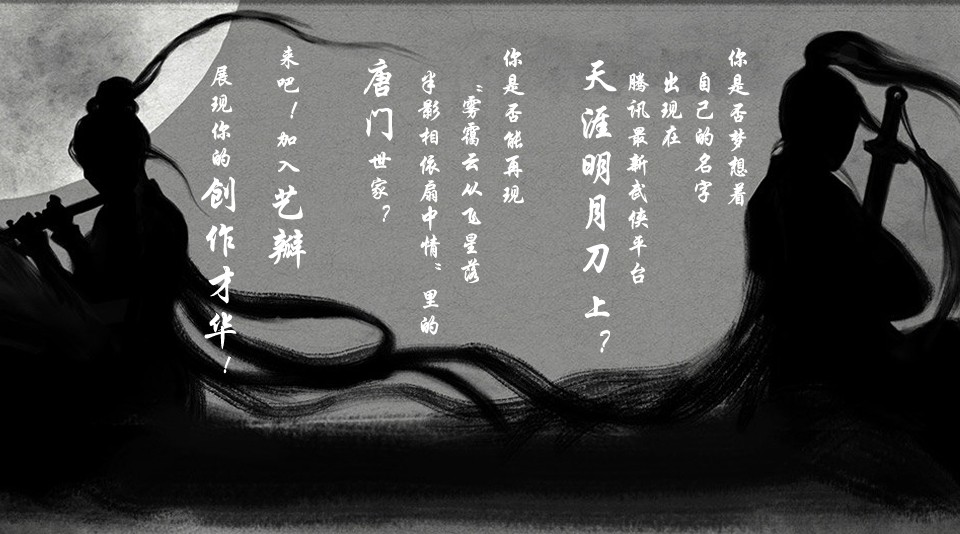 你是否梦想着
自己的名字
出现在
腾讯最新武侠平台
天涯明月刀 上？
你是否能再现
“雾霭云从飞星落
半影相依扇中情”里的
唐门世家？
来吧！加入艺瓣
展现你的创作才华！